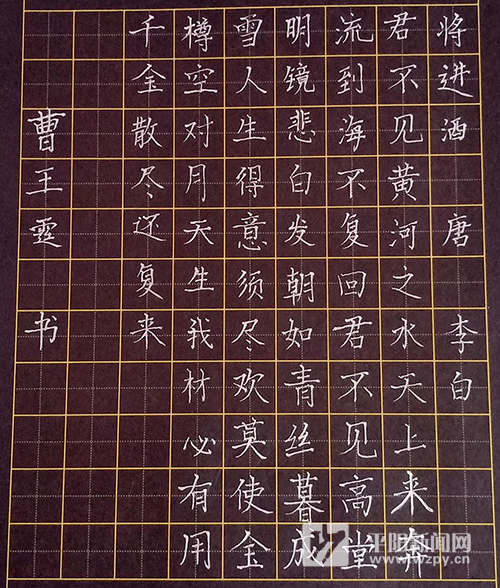 将进酒 唐 李白
君不见黄河之水天上来奔
流到海不复回君不见高堂
明镜悲白发朝如青丝暮成
雪人生得意须尽欢莫使金
樽空对月天生我材必有用
千金散尽还复来
曹王 书
平阳新闻网
www.wzpy.cn